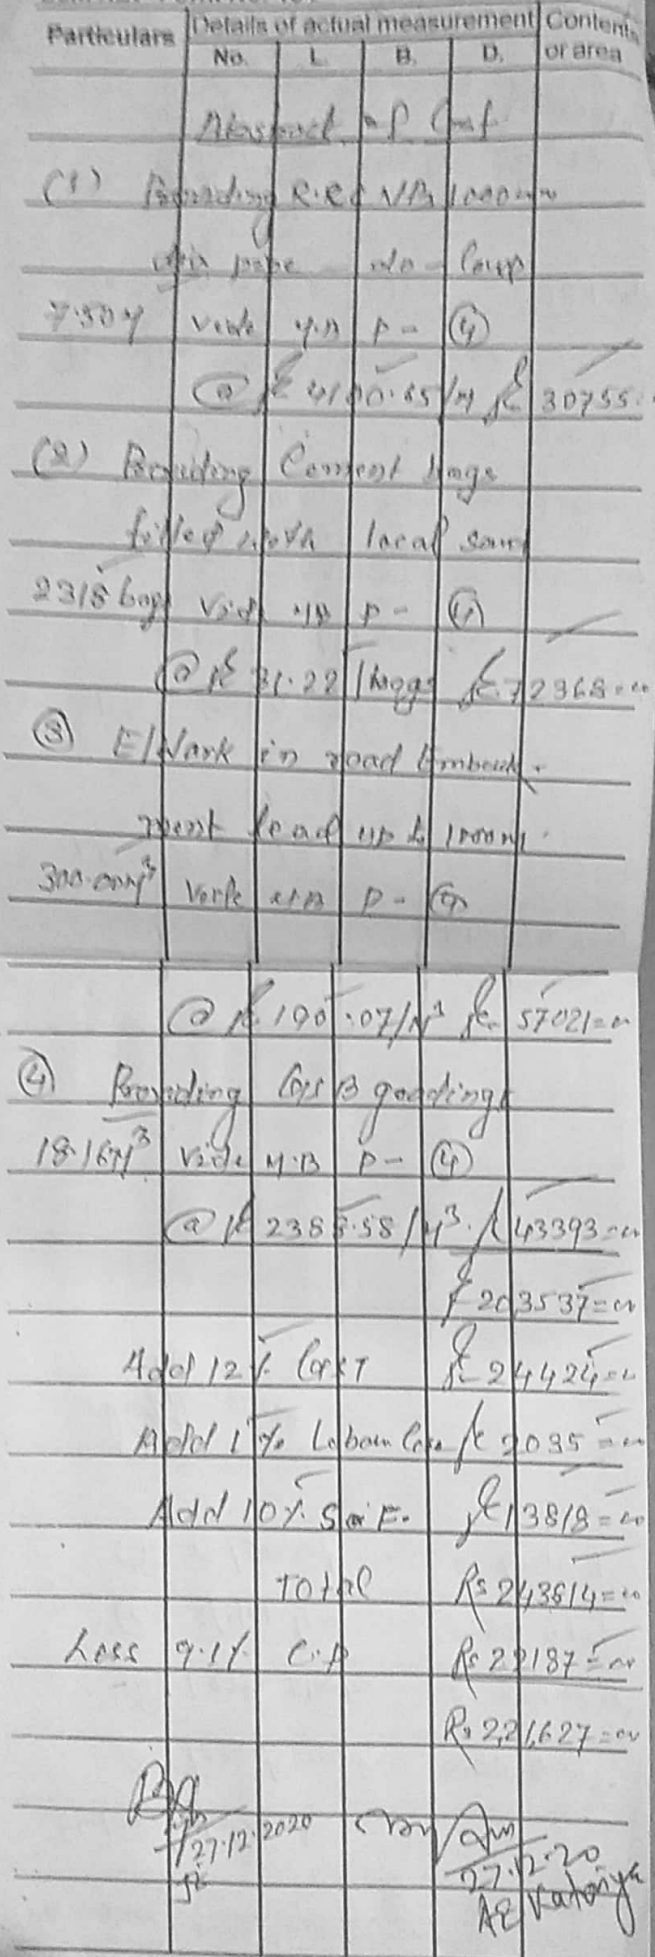 Particulars Details of actual measurement Contents or area
No. L. B. D.
Abstract of Cost
(1) Providing R.C.C NP3 1000mm
dia pipe
7.50M Vide M.B P- (4)
@ Rs 4100.65/M Rs 30755=
(2) Providing Cement bags
filled with local sand
2318 bags Vide MB P- (4)
@ Rs 31.22/bags Rs 72368=00
(3) E/Work in road Embank-
ment lead up to 1000M.
300.00M³ Vide M.B P-
@ Rs 190.07/M³ Rs 57021=00
(4) Providing
18.16M³ Vide M.B P- (4)
@ Rs 2388.58/M³. Rs 43393=00
Rs 203537=00
Add 12% Rs 24424=00
Add 1% Labour Cess Rs 2035=00
Add 10% S F. Rs 13818=00
Total Rs 243814=00
Less 9.1% Rs 22187=00
Rs 2,21,627=00
27.12.2020
27.12.20
JE
AE Katoriya